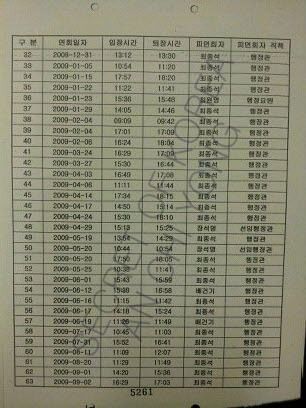 구 분 면회일자 입장시간 퇴장시간 피면회자 피면회자 직책
32 2008-12-31 13:12 13:30 최종석 행정관
33 2009-01-05 10:54 11:20 최종석 행정관
34 2009-01-15 17:57 18:20 최종석 행정관
35 2009-01-22 11:22 11:41 최종석 행정관
36 2009-01-23 15:36 15:48 행정요원
37 2009-01-29 14:05 14:46 최종석 행정관
38 2009-02-04 09:09 09:42 최종석 행정관
39 2009-02-04 17:01 17:09 최종석 행정관
40 2009-02-06 16:24 18:04 최종석 행정관
41 2009-03-24 16:29 17:09 최종석 행정관
42 2009-03-27 15:30 16:44 최종석 행정관
43 2009-04-03 16:47 17:08 최종석 행정관
44 2009-04-06 11:11 11:44 최종석 행정관
45 2009-04-14 17:34 18:15 최종석 행정관
46 2009-04-17 14:50 15:14 최종석 행정관
47 2009-04-24 15:30 18:10 최종석 행정관
48 2009-04-29 15:13 15:25 장석명 선임행정관
49 2009-05-19 13:54 14:29 최종석 행정관
50 2009-05-20 10:44 장석명 선임행정관
51 2009-05-20 17:50 18:05 최종석 행정관
52 2009-05-25 10:38 11:41 최종석 행정관
53 2009-06-01 15:43 15:59 최종석 행정관
54 2009-06-12 15:38 16:58 배건기 행정관
55 2009-06-16 11:15 11:42 최종석 행정관
56 2009-06-17 14:18 15:24 최종석 행정관
57 2009-06-19 11:26 11:49 배건기 행정관
58 2009-07-17 10:45 11:03 최종석 행정관
59 2009-07-31 15:52 16:41 최종석 행정관
60 2009-08-11 11:09 12:07 최종석 행정관
61 2009-08-20 11:29 11:49 최종석 행정관
62 2009-09-01 14:20 15:36 최종석 행정관
63 2009-09-02 16:29 17:03 최종석 행정관
5261